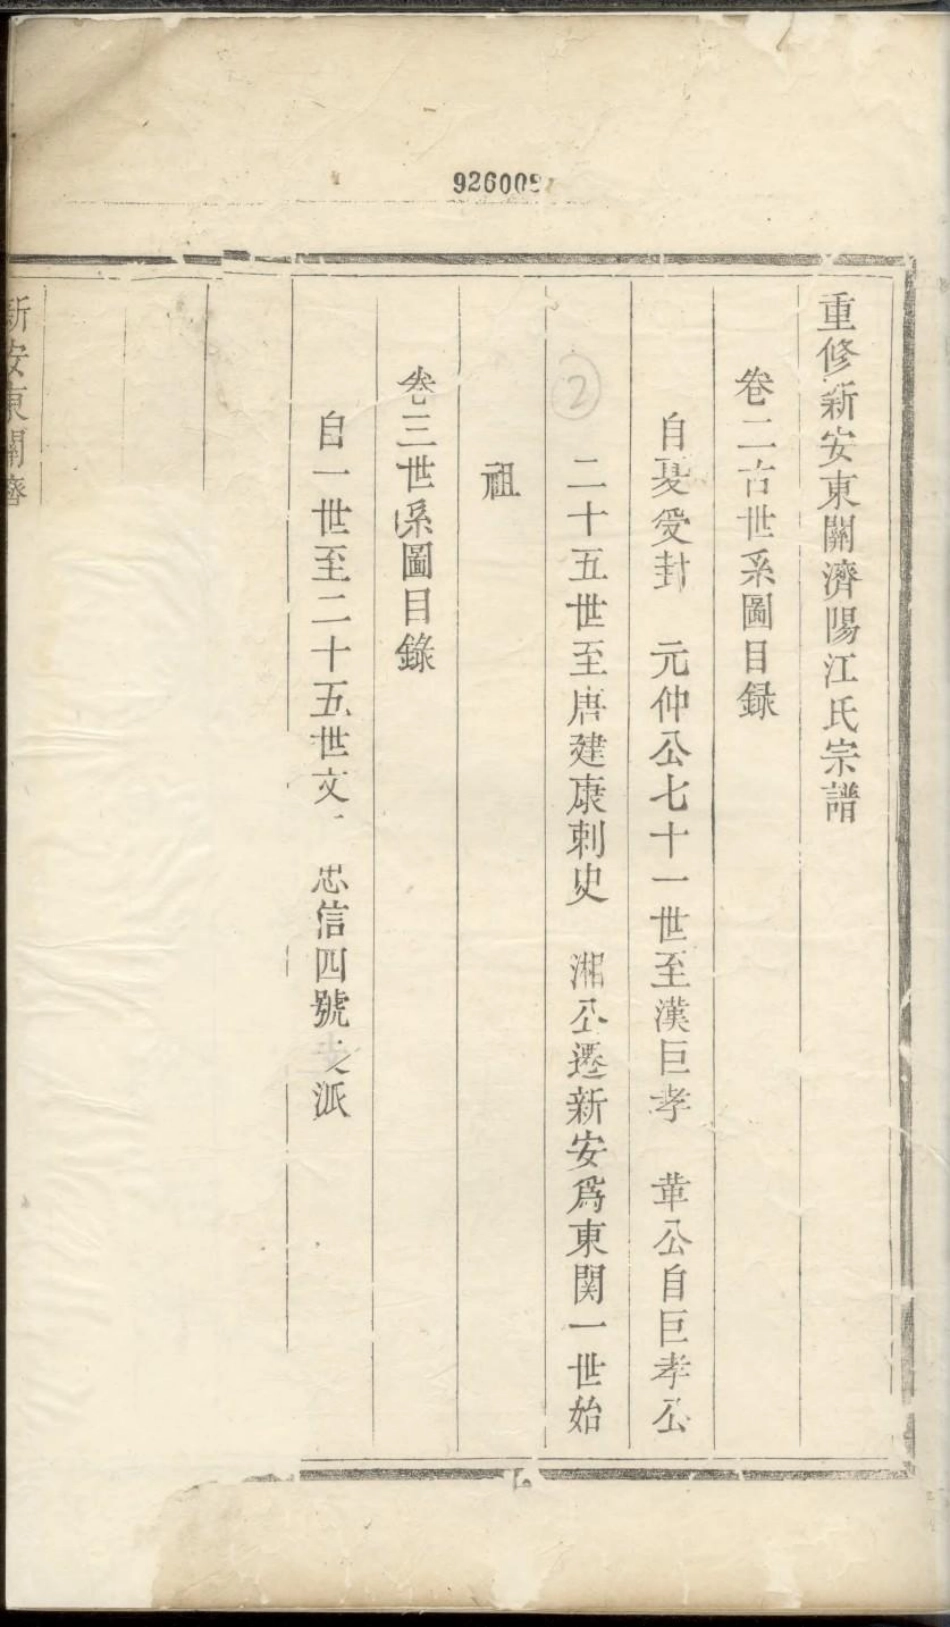 926009
重修新安東關濟陽江氏宗譜
卷二古世系圖目録
自夏受封 元仲公七十一世至漢巨孝 革公自巨孝公
②
二十五世至唐建康刺史 湘公遷新安爲東関一世始
祖
卷三世系圖目錄
自一世至二十五世文 忠信四號支派
新安東關濟